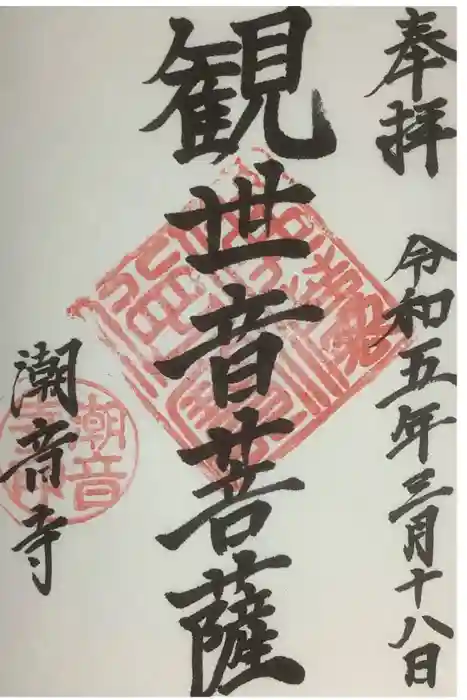 奉拝
令和五年三月十八日
観世音菩薩
潮音寺